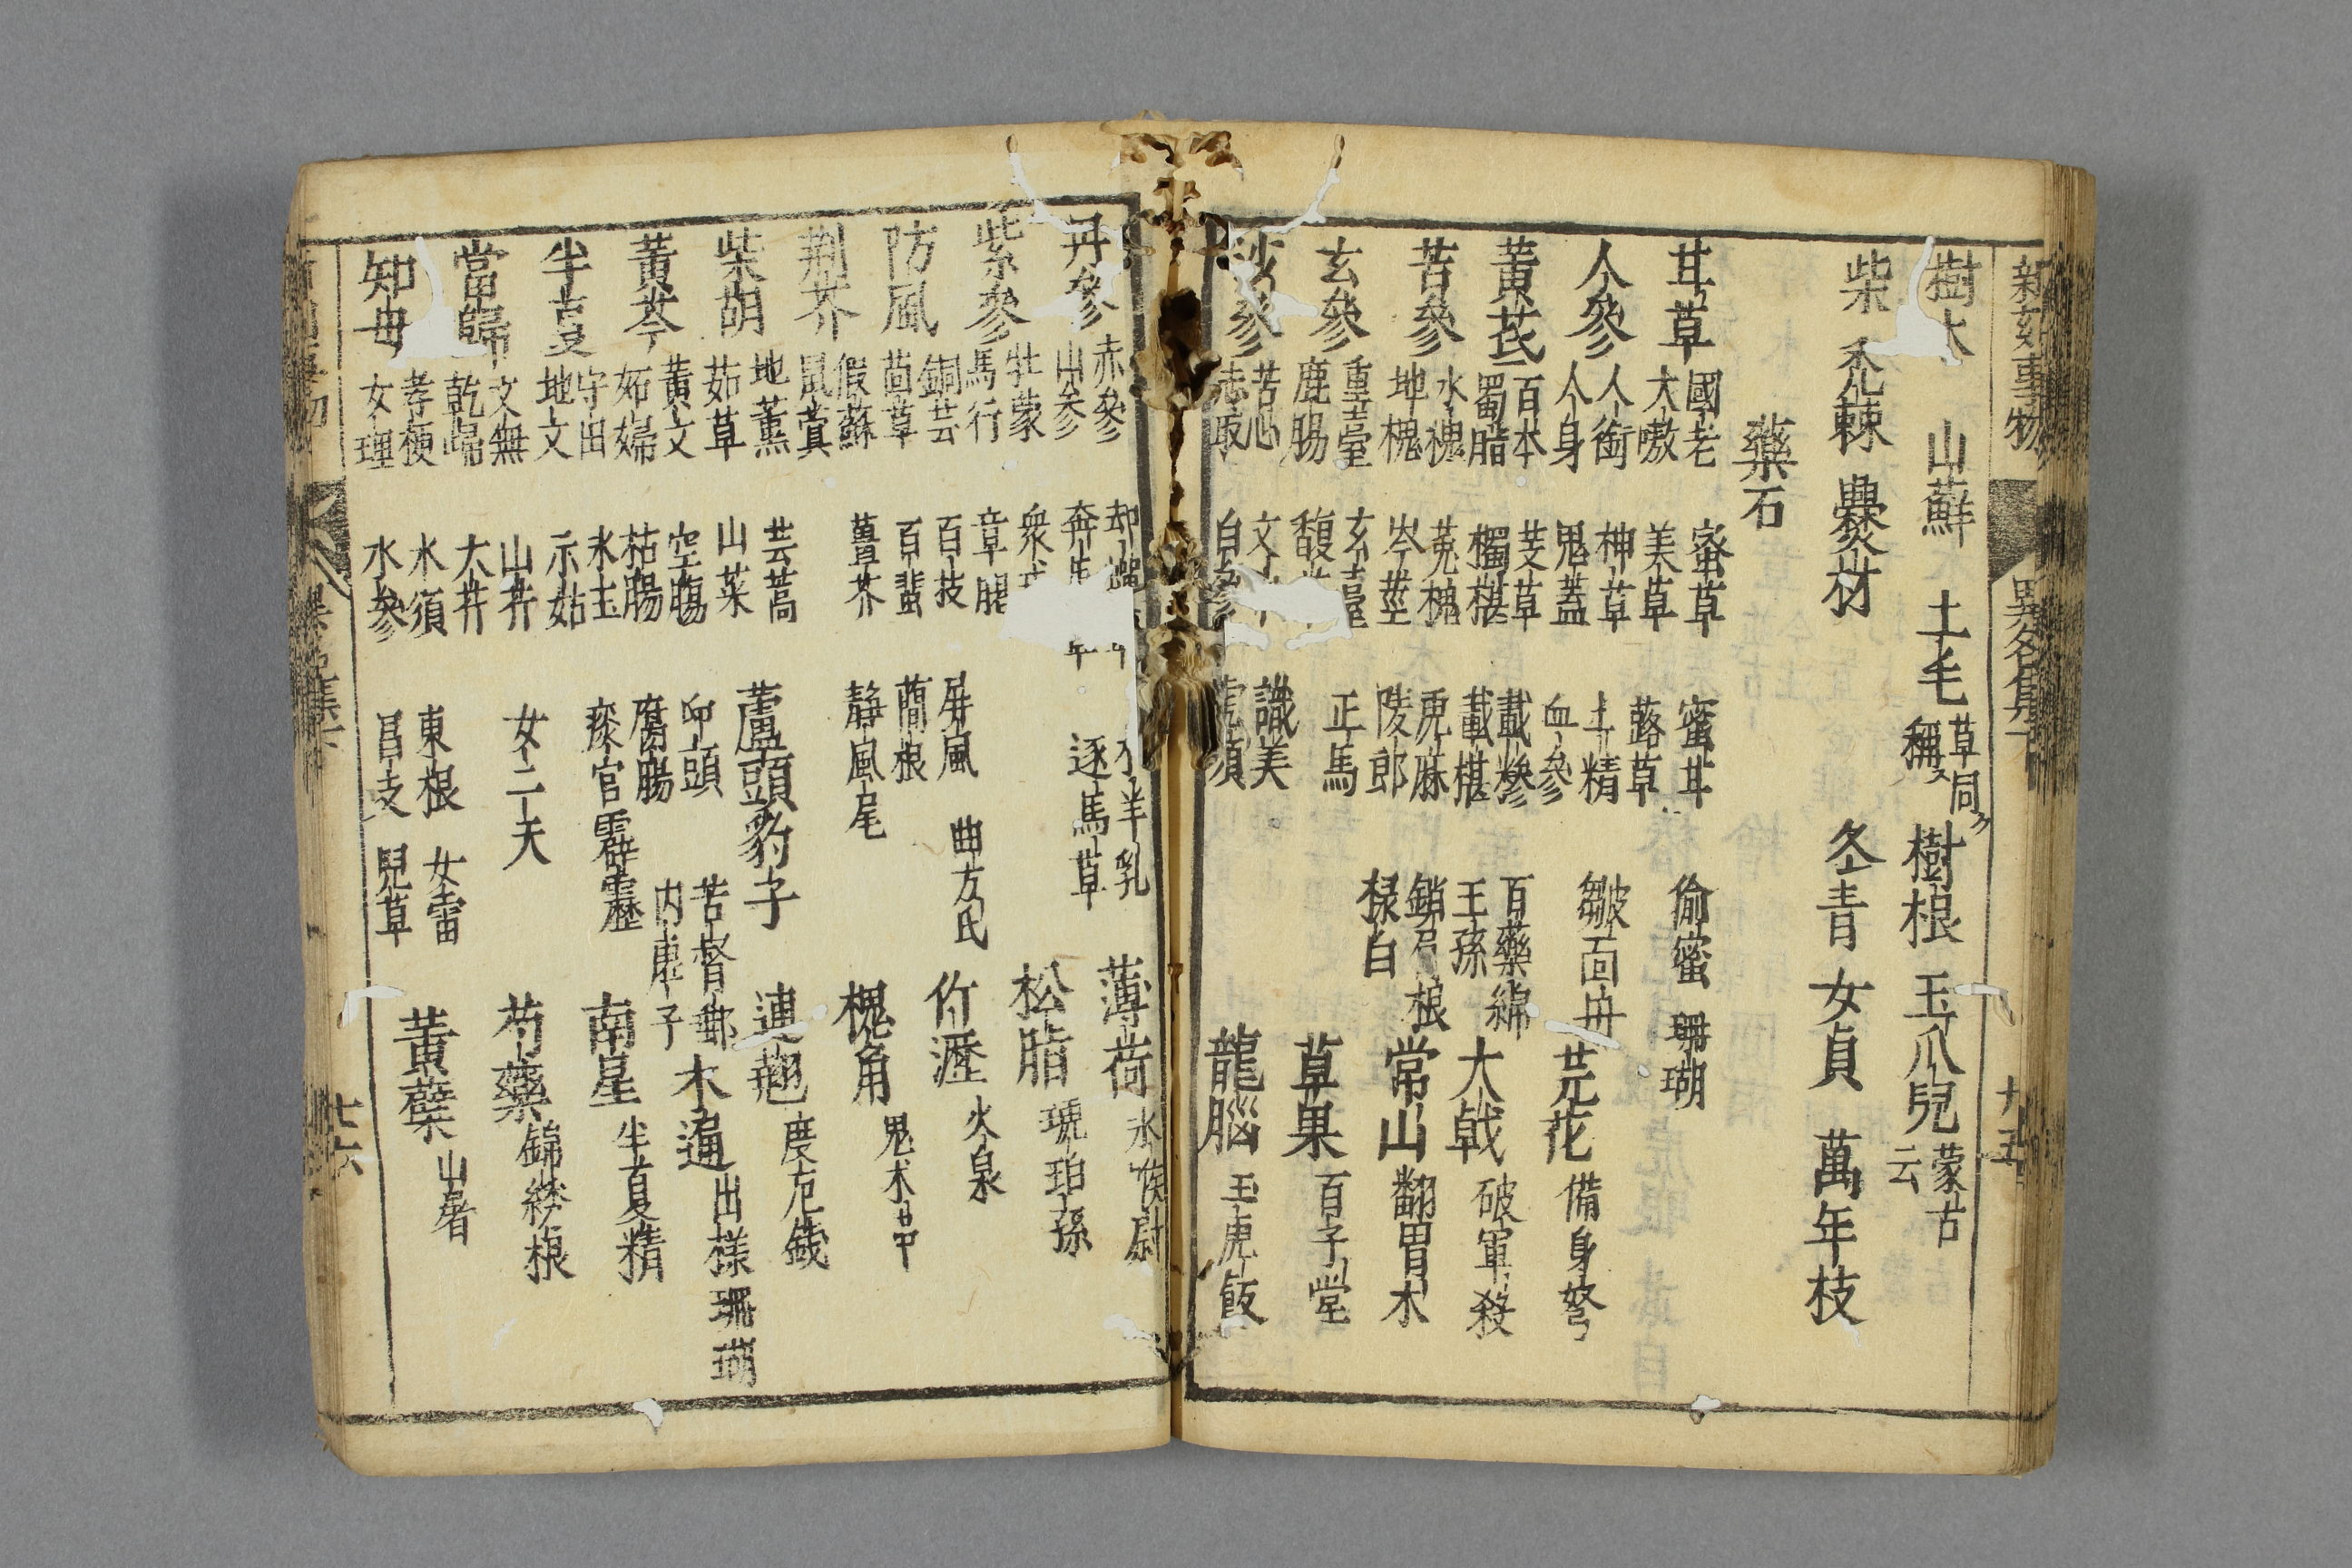 新刻事物 異名集下 九五
樹木 山蘇 土毛 草同 稱ス 樹根 玉爪兒 蒙古 云
柴 禿棘 爨材 冬青 女貞 萬年枝
藥石
甘草 國老 大嗷 蜜草 美草 蜜甘 蕗草 偷蜜 珊瑚
人參 人銜 人身 神草 鬼蓋 土精 血參 皺面 芫花 備身弩
黃芪 百本 蜀脂 芰草 獨椹 戴糝 戴椹 百藥綿 王孫 大戟 破軍殺
苦參 水槐 地槐 菟槐 岑莖 虎麻 陵郎 鎖 根 祿白 常山 翻胃木
玄參 重臺 鹿腸 玄臺 馥 正馬 草果 百子堂
沙參 苦心 志取 文 白參 識美 虎須 龍腦 玉虎飯
丹參 赤參 山參 却蟬 奔馬 羊乳 逐馬草 薄荷 水喉尉
紫參 牡蒙 馬行 衆戎 章腸 松脂 琥珀孫
防風 銅芸 茴草 百枝 百蜚 屏風 蕳根 曲方氏 竹瀝 火泉
荆芥 假蘇 鼠蓂 薑芥 靜風尾 槐角 鬼木芇
柴胡 地薰 茹草 芸蒿 山菜 蘆頭豹子 連翹 度厄錢
黃芩 黃文 妬婦 空膓 枯腸 印頭 腐腸 苦督郵 內虛子 木通 出樣珊瑚
半夏 守田 地文 水玉 示姑 痰官霹靂 南星 半夏精
當歸 文無 乾歸 山蘄 大蘄 女二天 芍藥 錦綉根
知母 孝梗 女理 水須 水參 東根 昌支 女雷 兒草 黃蘗 山屠